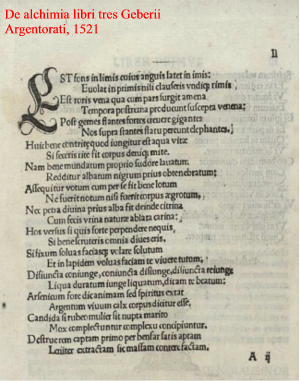 De alchimia libri tres Geberii
Argentorati, 1521
II
EST fons in limis cuius anguis latet in imis:
Euolat in primis nili clauseris vndiq; rimis
Est roris vena qua cum pars surgit amena
Tempora pestrema producunt suscepta venena;
Post gemes flantes fortes crucere gigantes
Nos supra stantes flatu percunt elephantes,
Huic bene contrito quod iungitur est aqua vitæ
Si feceris rite fit corpus deniq; mite.
Nam bene mundatum proprio sudore lauatum
Redditur albatum nigrum prius obtenebratum;
Assequitur votum cum per se fit bene lotum
Ne fuerit notum nisi fuerit corpus ægrotum,
Nec petra diuina prius alba fit deinde citrina
Cum fecis vrina naturæ ablata carina:
Hos versus si quis forte perpendere nequis,
Si bene scruteris omnia diues eris,
Si fixum soluas faciasq; volare solutum
Et in lapidem voluas faciam te viuere tutum,
Disiuncta coniunge, coniuncta disiunge, disiuncta reiunge
Liqua duratum iunge liquatum, dicam te beatum;
Arsenicum forte dic animam sed spiritus extat
Argentum viuum calx corpus dicitur esse,
Candida si rubeo mulier sit nupta marito
Mox complectuntur complexu concipiuntur,
Destruere captam primo per bensar saris aptam
Leniter extractam sic massam conterefactam,
A ij